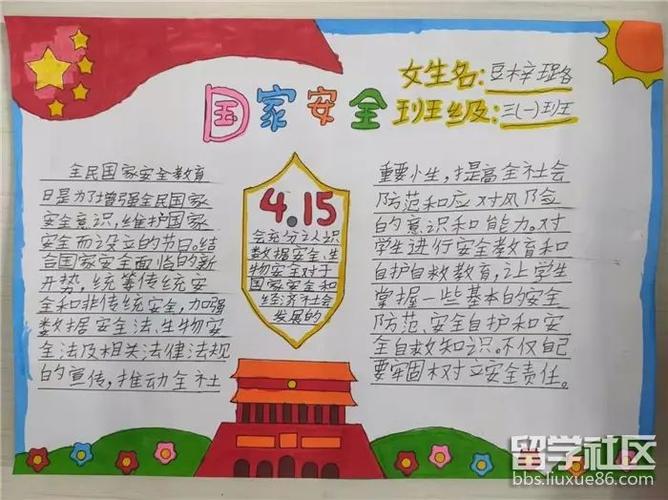 国家安全
姓名:豆梓璐
班级:三(一)班
全民国家安全教育
日是为了增强全民国家
安全意识,维护国家
安全而设立的节日。结
合国家安全面临的新
形势,统筹传统安
全和非传统安全,加强
数据安全法、生物安
全法及相关法律法规
的宣传,推动全社
4.15
会充分认识
数据安全、生
物安全对于
国家安全和
经济社会
发展的
重要性,提高全社会
防范和应对风险
的意识和能力。对
学生进行安全教育和
自护自救教育,让学生
掌握一些基本的安全
防范、安全自护和安
全自救知识。不仅自己
要牢固树立安全责任。
留学社区
bbs.liuxue86.com